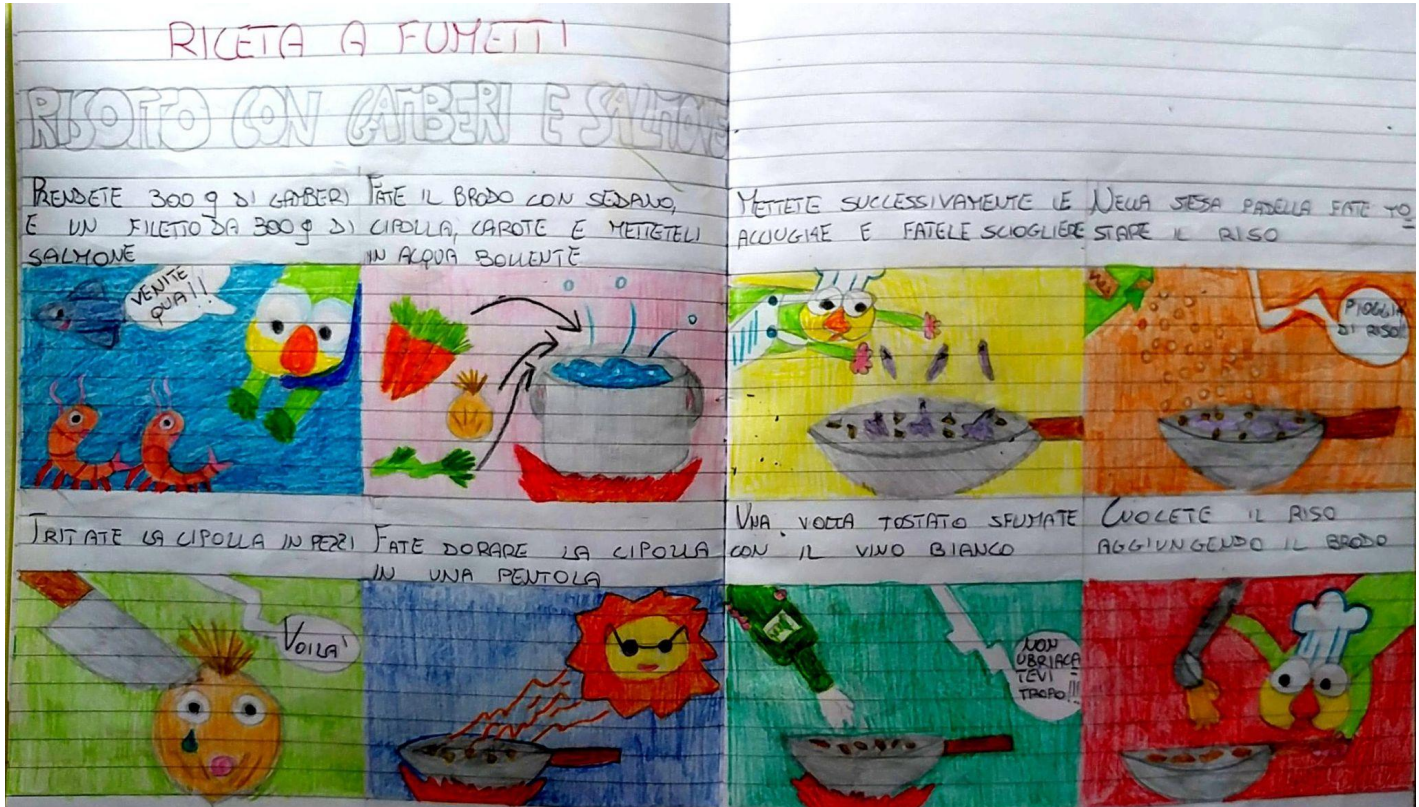 RICETA A FUMETTI
RISOTTO CON GAMBERI E SALMONE
PRENDETE 300 g DI GAMBERI
E UN FILETTO DA 300 g DI
SALMONE
VENITE
QUA!!
FATE IL BRODO CON SEDANO,
CIPOLLA, CAROTE E METTETELI
IN ACQUA BOLLENTE
TRITATE LA CIPOLLA IN PEZZI
VOILA'
FATE DORARE LA CIPOLLA
IN UNA PENTOLA
METTETE SUCCESSIVAMENTE LE
ACCIUGHE E FATELE SCIOGLIERE
NELLA STESA PADELLA FATE TO=
STARE IL RISO
PIOGGIA
DI RISO!!
UNA VOLTA TOSTATO SFUMATE
CON IL VINO BIANCO
NON
UBRIACA=
TEVI
TROPO!!!
CUOCETE IL RISO
AGGIUNGENDO IL BRODO